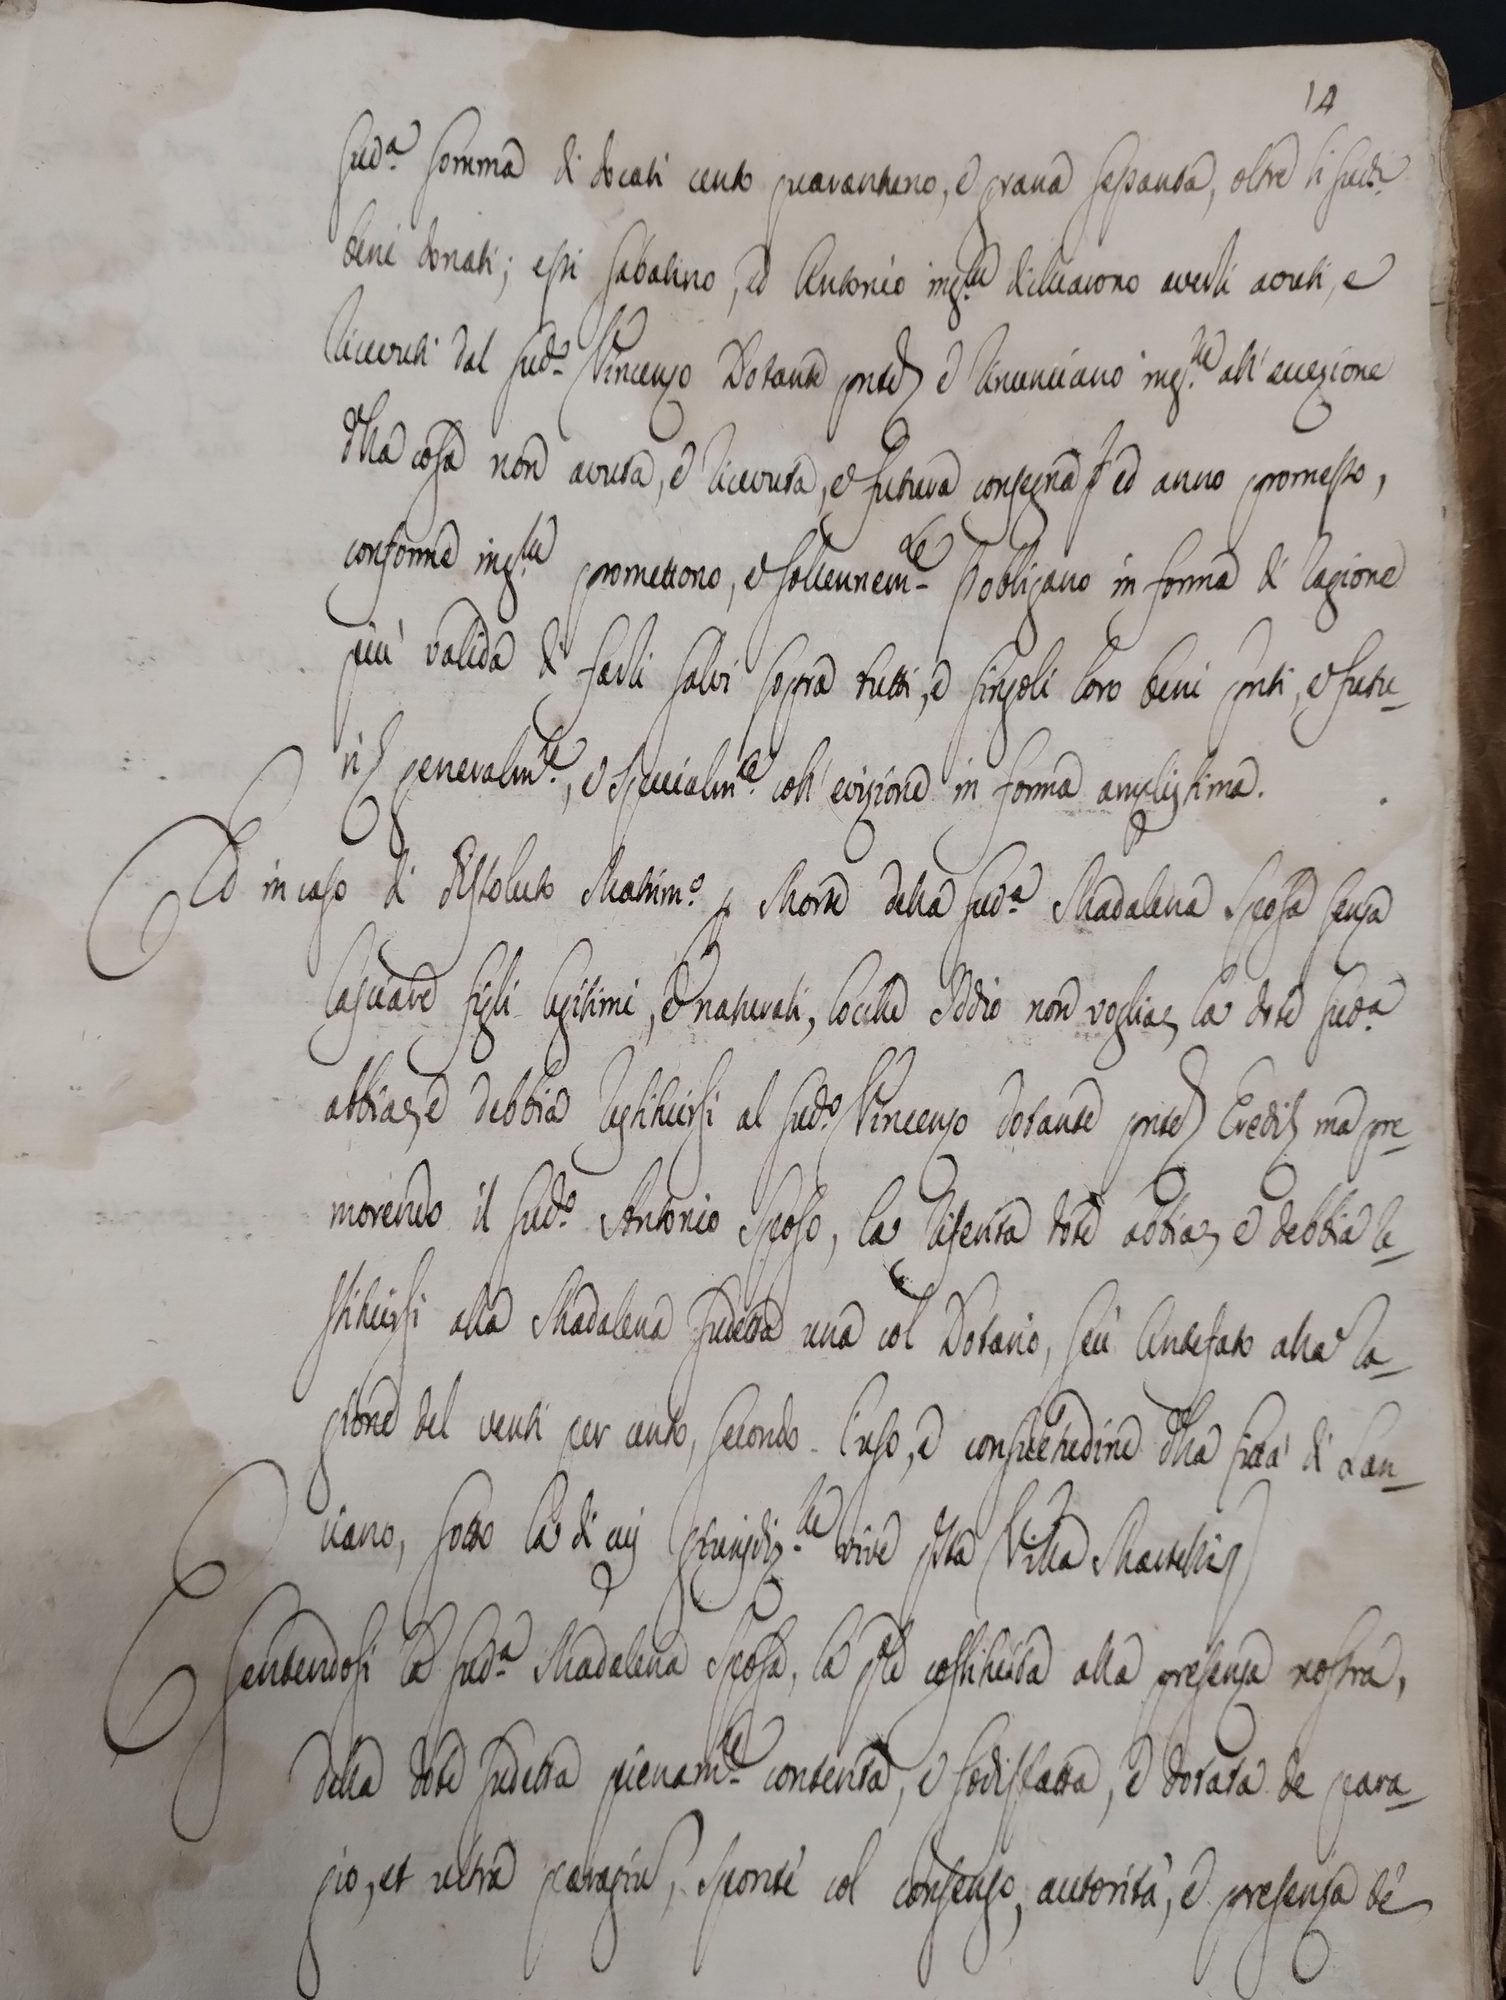 14
sud.ª somma di docati cento quarantuno, e grana sessanta, oltre li sud.ti
beni donati; essi Sabatino, ed Antonio ins.te dichiarono averli avuti, e
ricevuti dal sud.º Vincenzo Dotante pnte, e rinunciano ins.te all'eccezione
d'lla cosa non avuta, e ricevuta, e futura consegna ed anno promesso,
conforme ins.te promettono, e sollennem.te s'obbligano in forma di ragione
più valida di farli salvi sopra tutti, e singoli loro beni pnti, e futu-
ri, generalm.te, e specialm.te coll'evizione in forma amplissima.
Ed in caso di dissoluto Matrim.º p morte della sud.ª Madalena Sposa senza
lasciare figli legitimi, e naturali, locche Iddio non voglia, la dote sud.ª
abbia, e debbia restituirsi al sud.º Vincenzo dotante pnte, Eredi, ma pre-
morendo il sud.º Antonio Sposo, la riferita dote abbia, e debbia re-
stituirsi alla Madalena sudetta una col Dotario, seù Antefato alla ra-
gione del venti per cento, secondo l'uso, e consuetudine d'lla Città di Lan-
ciano, sotto la di cui giurisdiz.ne vive q'sta Villa Martelli,
E sentendosi la sud.ª Madalena Sposa, la q'le costituita alla presenza nostra,
della dote sudetta pienam.te contenta, e sodisfatta, e dotata de para-
gio, et ultra paragiu, sponte col consenso, autorità, e presenza de